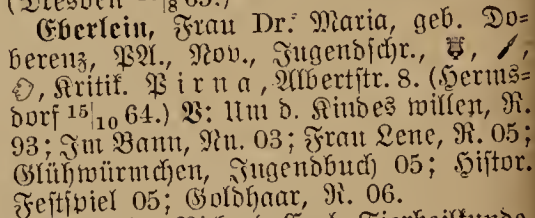 (Dresden 8/8 65.)
Eberlein, Frau Dr. Maria, geb. Do-
berenz, PA., Nov., Jugendschr.,
Kritik. Pirna, Albertstr. 8. (Herms-
dorf 15/10 64.) V: Um d. Kindes willen, R.
93; Im Bann, Nn. 03; Frau Lene, R. 05;
Glühwürmchen, Jugendbuch 05; Histor.
Festspiel 05; Goldhaar, R. 06.